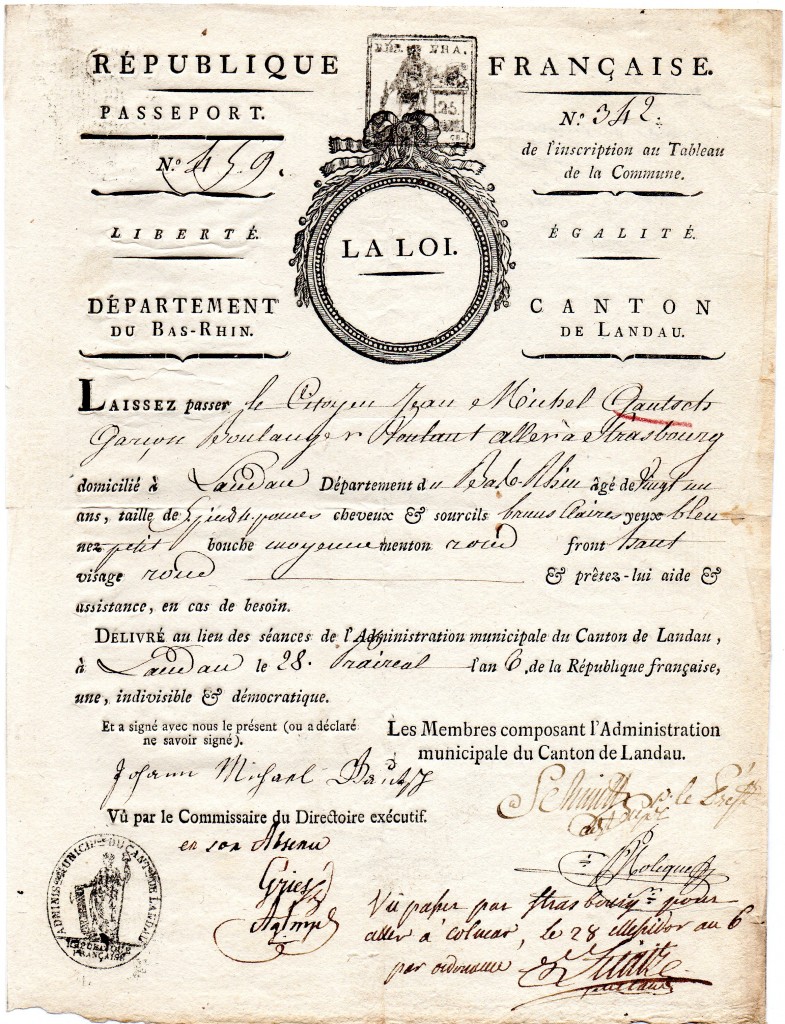 RÉP. FRA.
25
RÉPUBLIQUE FRANÇAISE.
PASSEPORT.
N.º 459.
N.º 342.
de l'inscription au Tableau
de la Commune.
LIBERTÉ.
LA LOI.
ÉGALITÉ.
DÉPARTEMENT
DU BAS-RHIN.
CANTON
DE LANDAU.
LAISSEZ passer le Citoyen Jean Michel
Garçon Boulanger voulant aller à Strasbourg
domicilié à Landau Département du Bas-Rhin âgé de vingt un
ans, taille de 5 pieds 4 pouces cheveux & sourcils bruns claires yeux bleu
nez petit bouche moyenne menton rond front haut
visage rond & prêtez-lui aide &
assistance, en cas de besoin.
DELIVRÉ au lieu des séances de l'Administration municipale du Canton de Landau,
à Landau le 28. Prairéal l'an 6. de la République française,
une, indivisible & démocratique.
Et a signé avec nous le présent (ou a déclaré
ne savoir signé).
Les Membres composant l'Administration
municipale du Canton de Landau.
Johann Michael
Vû par le Commissaire du Directoire exécutif.
en son Absence
Vu passer par Strasbourg pour
aller à Colmar, le 28 Messidor an 6
par ordonnance
ADMINIS. MUNICIP. DU CANT. DE LANDAU
RÉPUBLIQUE
FRANÇAISE